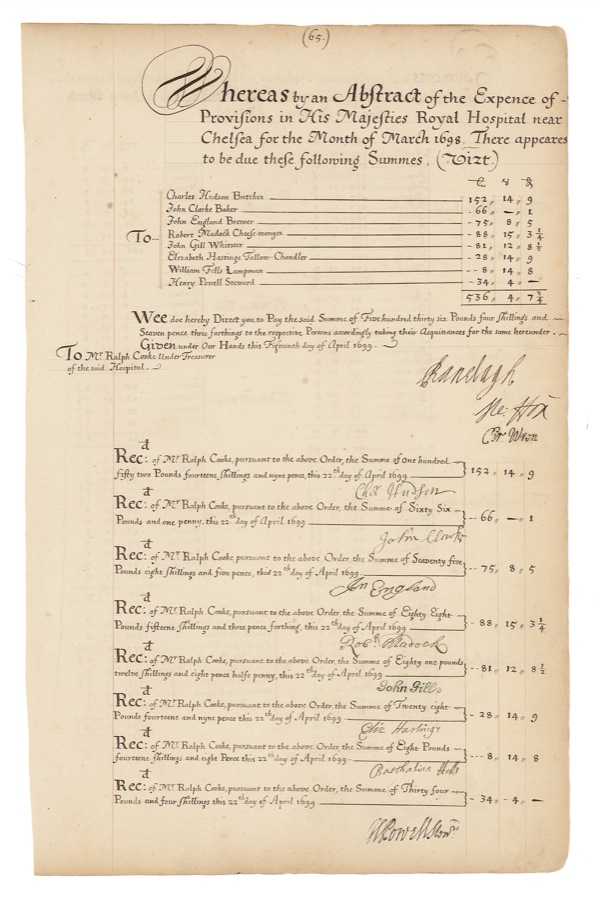 (65.)
Whereas by an Abstract of the Expence of
Provisions in His Majesties Royal Hospital near
Chelsea for the Month of March 1698. There appeares
to be due these following Summes. (Vizt.)
£ s d
Charles Hudson Butcher 152,, 14,, 9
John Clarke Baker - 66,, — ,, 1
John England Brewer - 75,, 8,, 5
Robert Madock Cheese-monger - 88,, 15,, 3 1/4
To John Gill Whitster - 81,, 12,, 8 1/2
Elizabeth Hastings Tallow-Chandler - 28,, 14,, 9
William Fills Lampman - - 8,, 14,, 8
Henry Powell Steward - 34,, 4,, —
536,, 4,, 7 3/4
Wee doe hereby Direct you to Pay the said Summe of Five hundred thirty six Pounds four shillings and
Seaven pence three farthings to the respective Persons accordingly taking their Acquittances for the same hereunder.
Given under Our Hands this Fifteenth day of April 1699.
To Mr. Ralph Cooke Under Treasurer
of the said Hospital.
Ranelagh
Ste: Fox
Chr: Wren
Rec:d of Mr. Ralph Cooke, pursuant to the above Order, the Summe of One hundred
fifty two Pounds fourteene shillings and nyne pence, this 22th day of April 1699 } 152,, 14,, 9
Cha Hudson
Rec:d of Mr. Ralph Cooke, pursuant to the above Order, the Summe of Sixty Six
Pounds and one penny, this 22th day of April 1699 } - 66,, — ,, 1
John Clark
Rec:d of Mr. Ralph Cooke, pursuant to the above Order, the Summe of Seaventy five
Pounds eight shillings and five pence, this 22th day of April 1699 } - 75,, 8,, 5
Jn England
Rec:d of Mr. Ralph Cooke, pursuant to the above Order, the Summe of Eighty Eight
Pounds fifteene shillings and three pence farthing, this 22th day of April 1699 } - 88,, 15,, 3 1/4
Robt Madock
Rec:d of Mr. Ralph Cooke, pursuant to the above Order, the Summe of Eighty one pounds
twelve shillings and eight pence halfe penny, this 22th day of April 1699 } - 81,, 12,, 8 1/2
John Gill
Rec:d of Mr. Ralph Cooke, pursuant to the above Order, the Summe of Twenty eight
Pounds fourteene and nyne pence this 22th day of April 1699 } - 28,, 14,, 9
Eliz Hastings
Rec:d of Mr. Ralph Cooke, pursuant to the above Order, the Summe of Eight Pounds
fourteene shillings and eight Pence this 22th day of April 1699 } - - 8,, 14,, 8
Rec:d of Mr. Ralph Cooke, pursuant to the above Order, the Summe of Thirty four
Pounds and four shillings this 22th day of April 1699 } - 34,, - 4,, —
H Powell